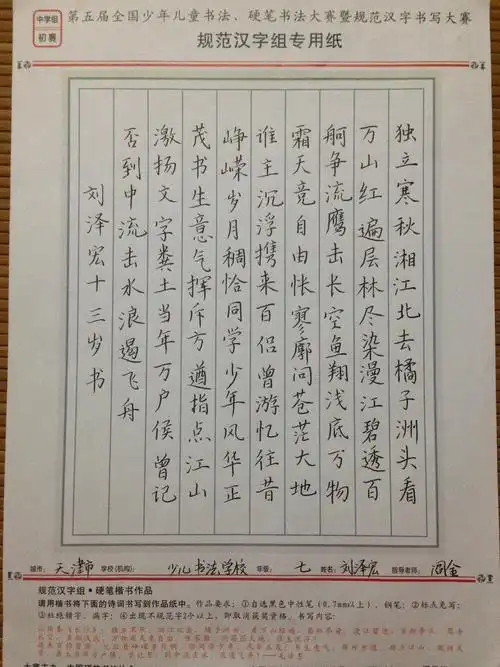 中学组
初赛
第五届全国少年儿童书法、硬笔书法大赛暨规范汉字书写大赛
规范汉字组专用纸
独立寒秋湘江北去橘子洲头看
万山红遍层林尽染漫江碧透百
舸争流鹰击长空鱼翔浅底万物
霜天竞自由怅寥廓问苍茫大地
谁主沉浮携来百侣曾游忆往昔
峥嵘岁月稠恰同学少年风华正
茂书生意气挥斥方遒指点江山
激扬文字粪土当年万户侯曾记
否到中流击水浪遏飞舟
刘泽宏十三岁书
城市：天津市 学校(机构)：少儿书法学校 年级：七 姓名：刘泽宏 指导老师：
规范汉字组·硬笔楷书作品
请用楷书将下面的诗词书写到作品纸中。作品要求：①自选黑色中性笔（0.7mm以上）、钢笔；②标点免写；
③杜绝错字、漏字；④出现不规范字2个以上，即取消获奖资格。书写内容：